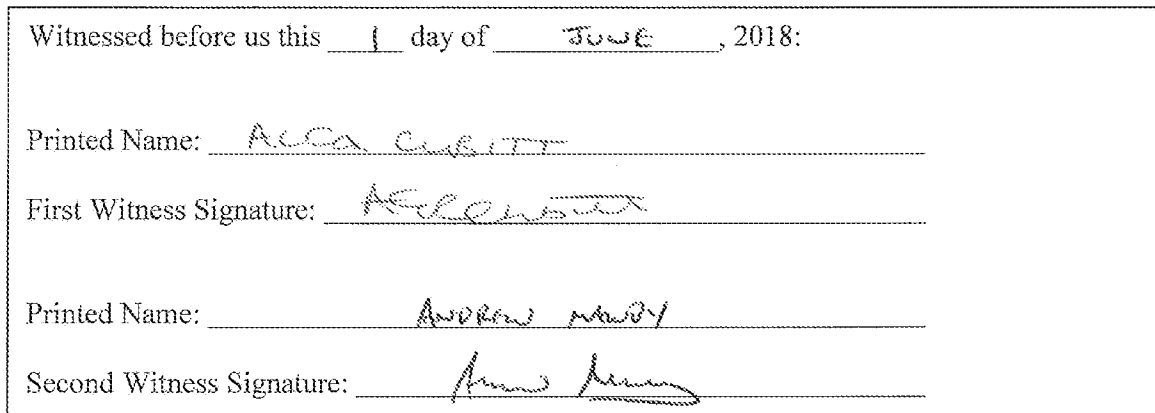 Witnessed before us this 1 day of JUNE, 2018:
Printed Name: CUBITT
First Witness Signature:
Printed Name: ANDREW
Second Witness Signature: